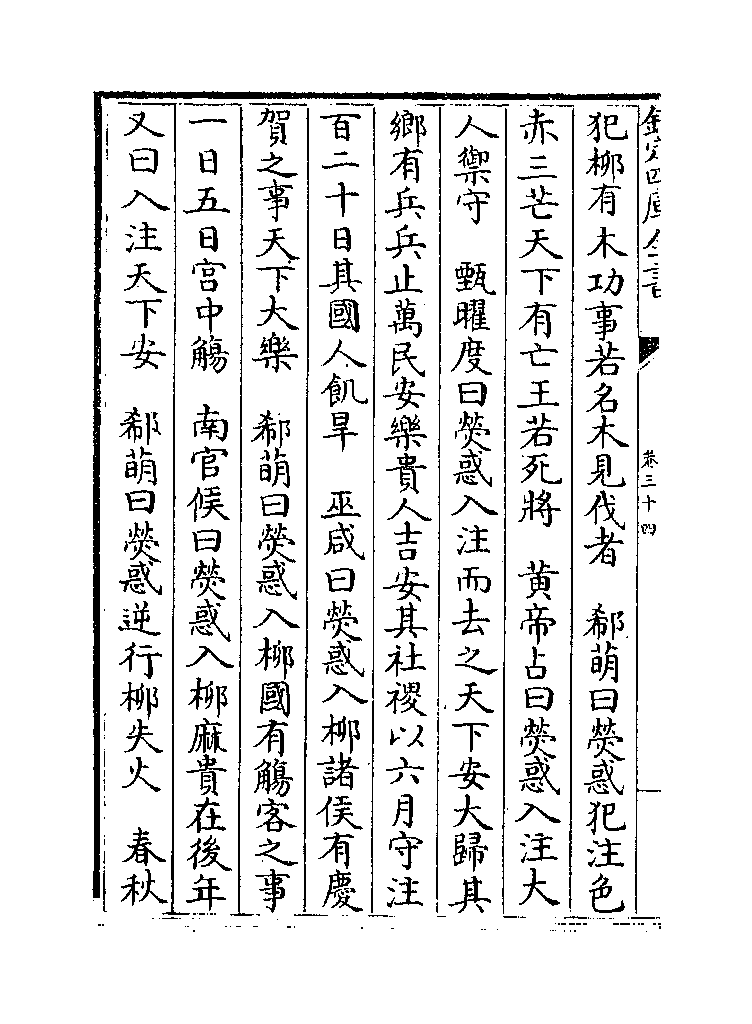 欽定四庫全書
卷三十四
犯柳有木功事若名木見伐者　郗萌曰熒惑犯注色
赤三芒天下有亡王若死將　黃帝占曰熒惑入注大
人禦守　甄曜度曰熒惑入注而去之天下安大歸其
鄉有兵兵止萬民安樂貴人吉安其社稷以六月守注
百二十日其國人飢旱　巫咸曰熒惑入柳諸侯有慶
賀之事天下大樂　郗萌曰熒惑入柳國有觴客之事
一日五日宫中觴　南官候曰熒惑入柳麻貴在後年
又曰入注天下安　郗萌曰熒惑逆行柳失火　春秋